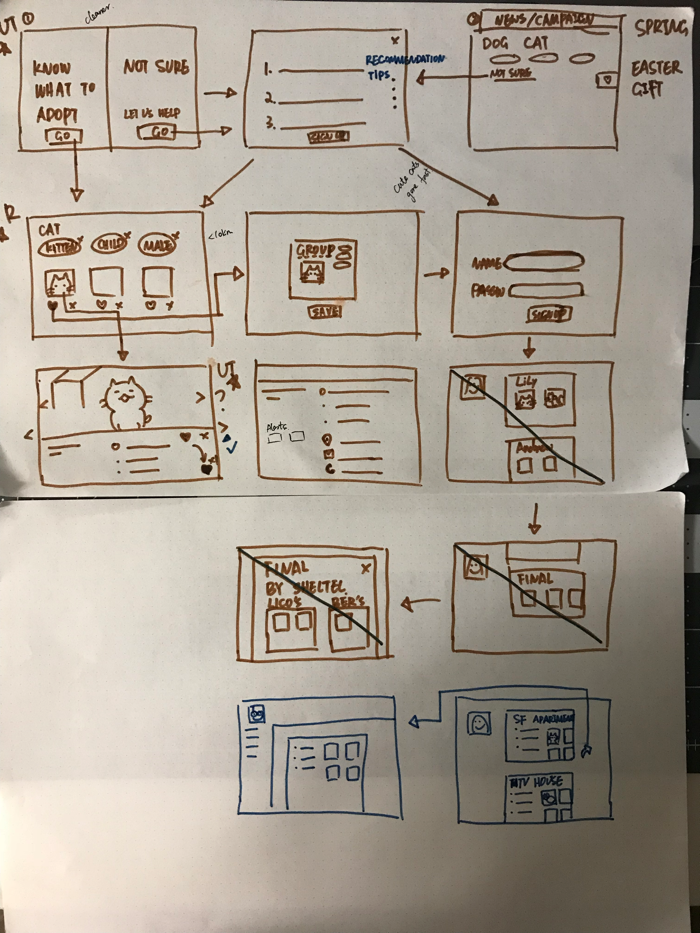 UT ①
cleaner
KNOW
WHAT TO
ADOPT
GO
NOT SURE
LET US HELP
GO
x
1.
2.
3.
RECOMMENDATION
TIPS
SIGN UP
NEWS/CAMPAIGN
DOG CAT
NOT SURE
SPRING
EASTER
GIFT
Cute cats
gone fast
R
CAT
KITTEN x
CHILD x
MALE x
x
x
GROUP
SAVE
NAME
PASSW
SIGN UP
UT
x
Alerts
Lily
FINAL
BY SHELTEL
x
LICO'S
BER'S
FINAL
SF APARTMENT
MTV HOUSE